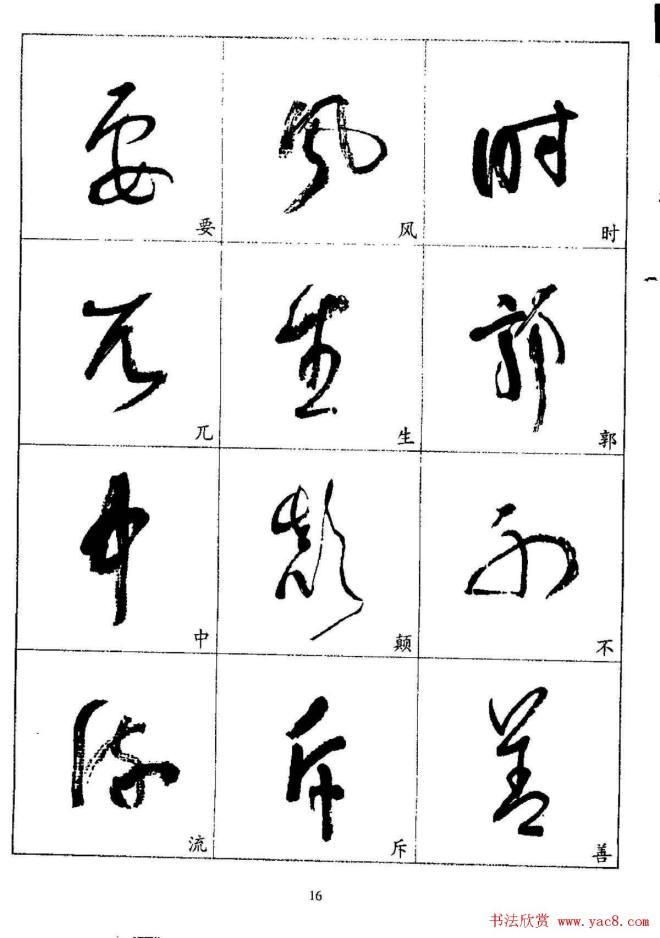 要 风 时
兀 生 郭
中 颠 不
流 斥 善
16
书法欣赏 www.yac8.com